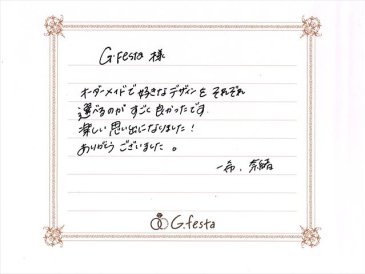 G.festa 様
オーダーメイドで好きなデザインを それぞれ
選べるのが すごく良かったです
楽しい思い出になりました！
ありがとうございました。
一希、奈緒
G.festa